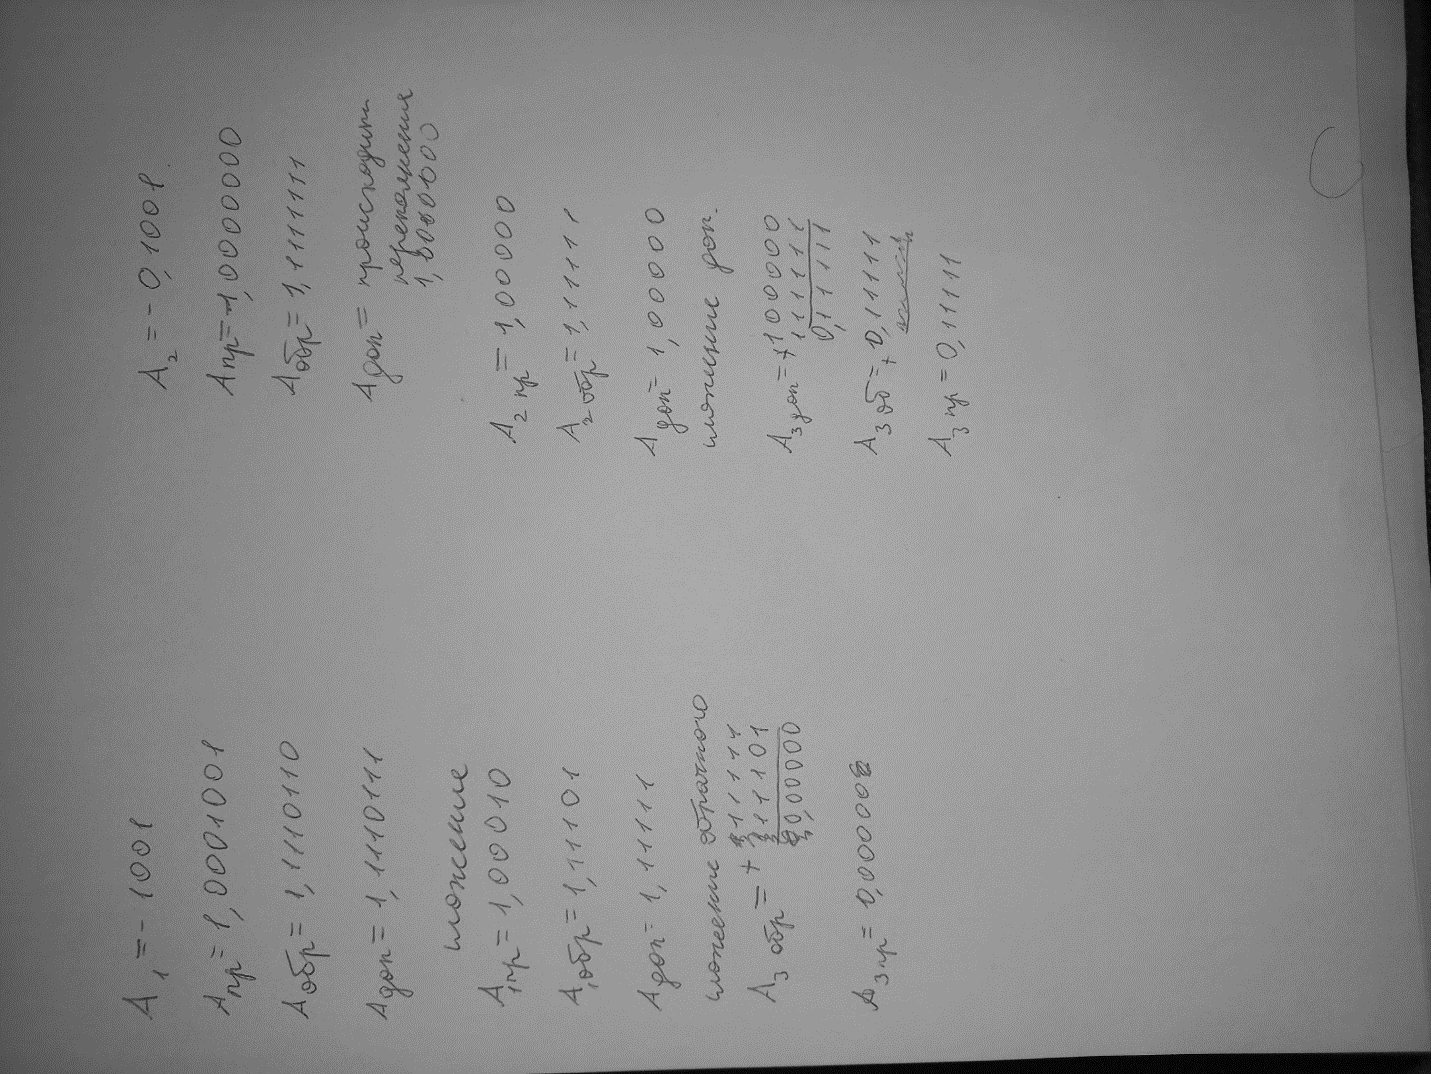 A₁ = - 1001
Aпр = 1,0001001
Aобр = 1,1110110
Aдоп = 1,1110111
сложение
A₁пр = 1,00010
A₁обр = 1,11101
Aдоп = 1,11111
сложение обратного
A₃ обр = +
111111
111101
0,00000
A₃пр = 0,00000
A₂ = - 0,1001
Aпр = 1,0000000
Aобр = 1,1111111
Aдоп = происходит
переполнения
1,0000000
A₂ пр = 1,00000
A₂ обр = 1,11111
Aдоп = 1,00000
сложение доп.
A₃ доп = + 100000
111111
0,11111
A₃ об = 0,11111
A₃ пр = 0,11111